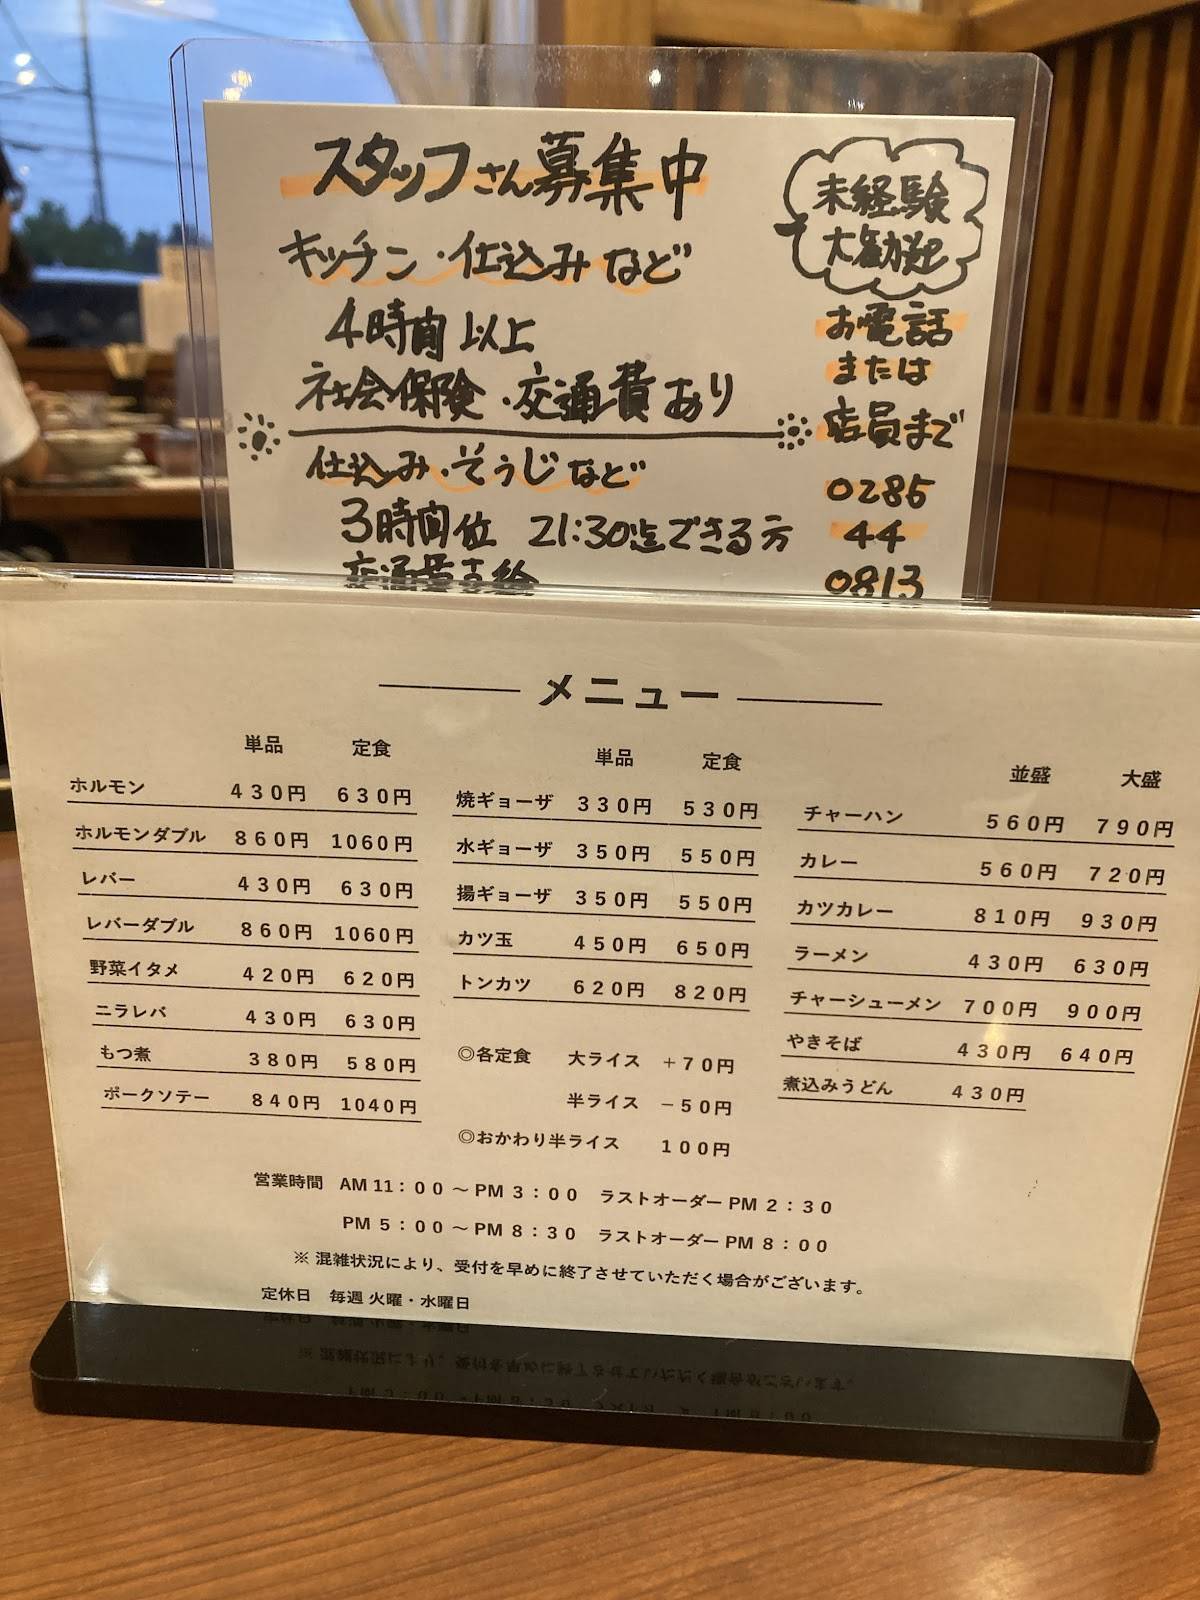 スタッフさん募集中
キッチン・仕込みなど
4時間以上
社会保険・交通費あり
仕込み・そうじなど
3時間位 21:30迄できる方
交通費支給
未経験
大歓迎
お電話
または
店員まで
0285
44
0813
メニュー
単品 定食
ホルモン 430円 630円
ホルモンダブル 860円 1060円
レバー 430円 630円
レバーダブル 860円 1060円
野菜イタメ 420円 620円
ニラレバ 430円 630円
もつ煮 380円 580円
ポークソテー 840円 1040円
単品 定食
焼ギョーザ 330円 530円
水ギョーザ 350円 550円
揚ギョーザ 350円 550円
カツ玉 450円 650円
トンカツ 620円 820円
◎各定食 大ライス +70円
半ライス −50円
◎おかわり半ライス 100円
並盛 大盛
チャーハン 560円 790円
カレー 560円 720円
カツカレー 810円 930円
ラーメン 430円 630円
チャーシューメン 700円 900円
やきそば 430円 640円
煮込みうどん 430円
営業時間 AM 11:00 ～ PM 3:00 ラストオーダー PM 2:30
PM 5:00 ～ PM 8:30 ラストオーダー PM 8:00
※ 混雑状況により、受付を早めに終了させていただく場合がございます。
定休日 毎週 火曜・水曜日